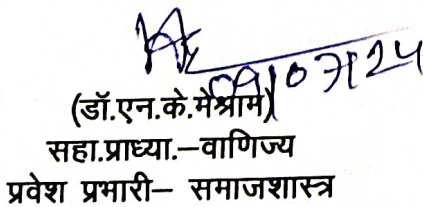 09/07/24
(डॉ.एन.के.मेश्राम)
सहा.प्राध्या.–वाणिज्य
प्रवेश प्रभारी– समाजशास्त्र